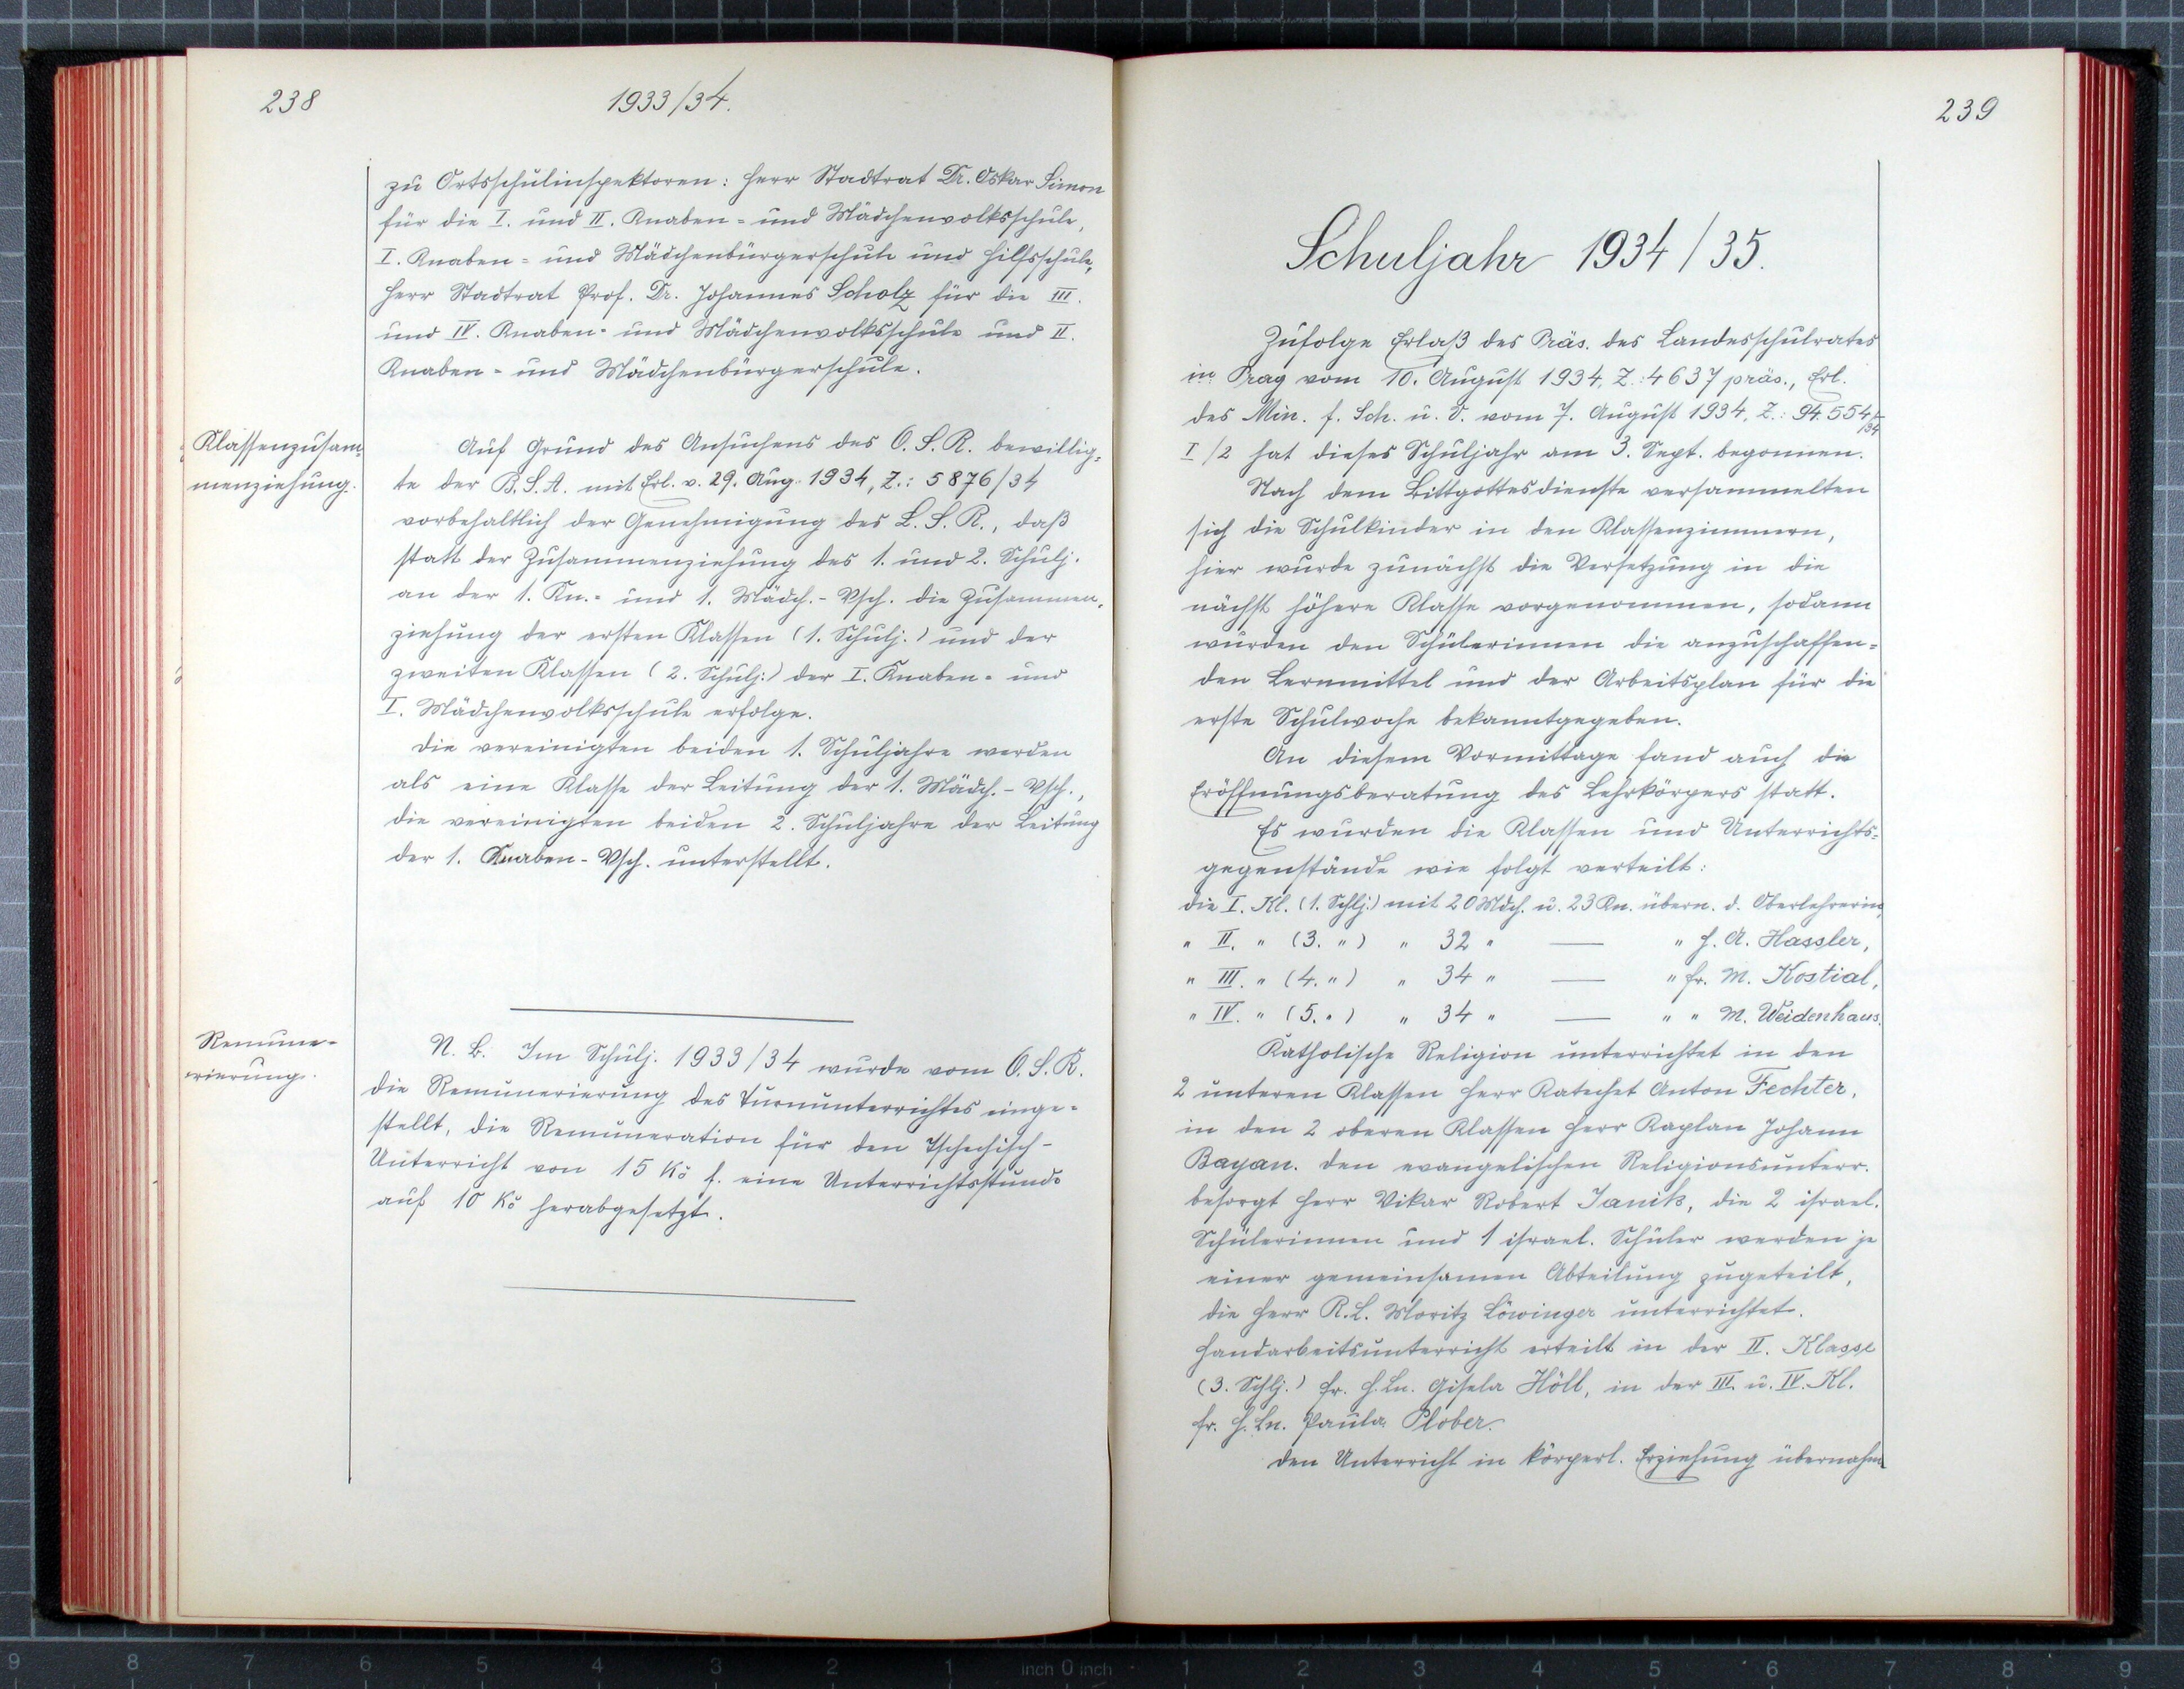 238
1933/34.
zu Ortsschulinspektoren: Herr Stadtrat Dr. Oskar Simon
für die I. und II. Knaben= und Mädchenvolksschule,
I. Knaben= und Mädchenbürgerschule und Hilfsschule,
Herr Stadtrat Prof. Dr. Johannes Scholz für die III.
und IV. Knaben= und Mädchenvolksschule und II.
Knaben= und Mädchenbürgerschule.
Klassenzusam=
menziehung.
Auf Grund des Ansuchens des O.S.R. bewillig=
te der B.S.A. mit Erl. v. 29. Aug. 1934, Z.: 5876/34
vorbehaltlich der Genehmigung des L.S.R., daß
statt der Zusammenziehung des 1. und 2. Schulj.
an der 1. Kn.= und 1. Mädch.-Vsch. die Zusammen=
ziehung der ersten Klassen (1. Schulj.) und der
zweiten Klassen (2. Schulj.) der I. Knaben= und
I. Mädchenvolksschule erfolge.
Die vereinigten beiden 1. Schuljahre werden
als eine Klasse der Leitung der 1. Mädch.-Vsch.,
die vereinigten beiden 2. Schuljahre der Leitung
der 1. Knaben-Vsch. unterstellt.
Remune-
rierung.
N.B. Im Schulj. 1933/34 wurde vom O.S.R.
die Remunerierung des Turnunterrichtes einge=
stellt, die Remuneration für den Tschechisch-
Unterricht von 15 Kč f. eine Unterrichtsstunde
auf 10 Kč herabgesetzt.
239
Schuljahr 1934/35.
Zufolge Erlaß des Präs. des Landesschulrates
in Prag vom 10. August 1934, Z.: 4637 präs., Erl.
des Min. f. Sch. u. V. vom 7. August 1934, Z.: 94.554/34
I/2 hat dieses Schuljahr am 3. Sept. begonnen.
Nach dem Bittgottesdienste versammelten
sich die Schulkinder in den Klassenzimmern,
hier wurde zunächst die Versetzung in die
nächst höhere Klasse vorgenommen, sodann
wurden den Schülerinnen die anzuschaffen=
den Lernmittel und der Arbeitsplan für die
erste Schulwoche bekanntgegeben.
An diesem Vormittage fand auch die
Eröffnungsberatung des Lehrkörpers statt.
Es wurden die Klassen und Unterrichts=
gegenstände wie folgt verteilt:
die I. Kl. (1. Schlj.) mit 20 Mdch. u. 23 Kn. übern. d. Oberlehrerin,
" II. " (3. ") " 32 " — " H. A. Hassler,
" III. " (4. ") " 34 " — " Fr. M. Kostial,
" IV. " (5. ") " 34 " — " " M. Weidenhaus.
Katholische Religion unterrichtet in den
2 unteren Klassen Herr Katechet Anton Fechter,
in den 2 oberen Klassen Herr Kaplan Johann
Bayan. Den evangelischen Religionsunterr.
besorgt Herr Vikar Robert Janik, die 2 israel.
Schülerinnen und 1 israel. Schüler werden je
einer gemeinsamen Abteilung zugeteilt,
die Herr R.L. Moritz Löwinger unterrichtet.
Handarbeitsunterricht erteilt in der II. Klasse
(3. Schlj.) Fr. H.Ln. Gisela Höll, in der III. u. IV. Kl.
Fr. H.Ln. Paula Plober.
Den Unterricht in körperl. Erziehung übernahm
9 8 7 6 5 4 3 2 1 inch 0 inch 1 2 3 4 5 6 7 8 9